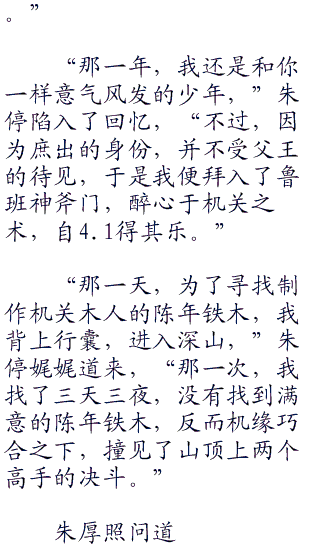 。”
“那一年，我还是和你
一样意气风发的少年，”朱
停陷入了回忆，“不过，因
为庶出的身份，并不受父王
的待见，于是我便拜入了鲁
班神斧门，醉心于机关之
术，自4.1得其乐。”
“那一天，为了寻找制
作机关木人的陈年铁木，我
背上行囊，进入深山，”朱
停娓娓道来，“那一次，我
找了三天三夜，没有找到满
意的陈年铁木，反而机缘巧
合之下，撞见了山顶上两个
高手的决斗。”
朱厚照问道